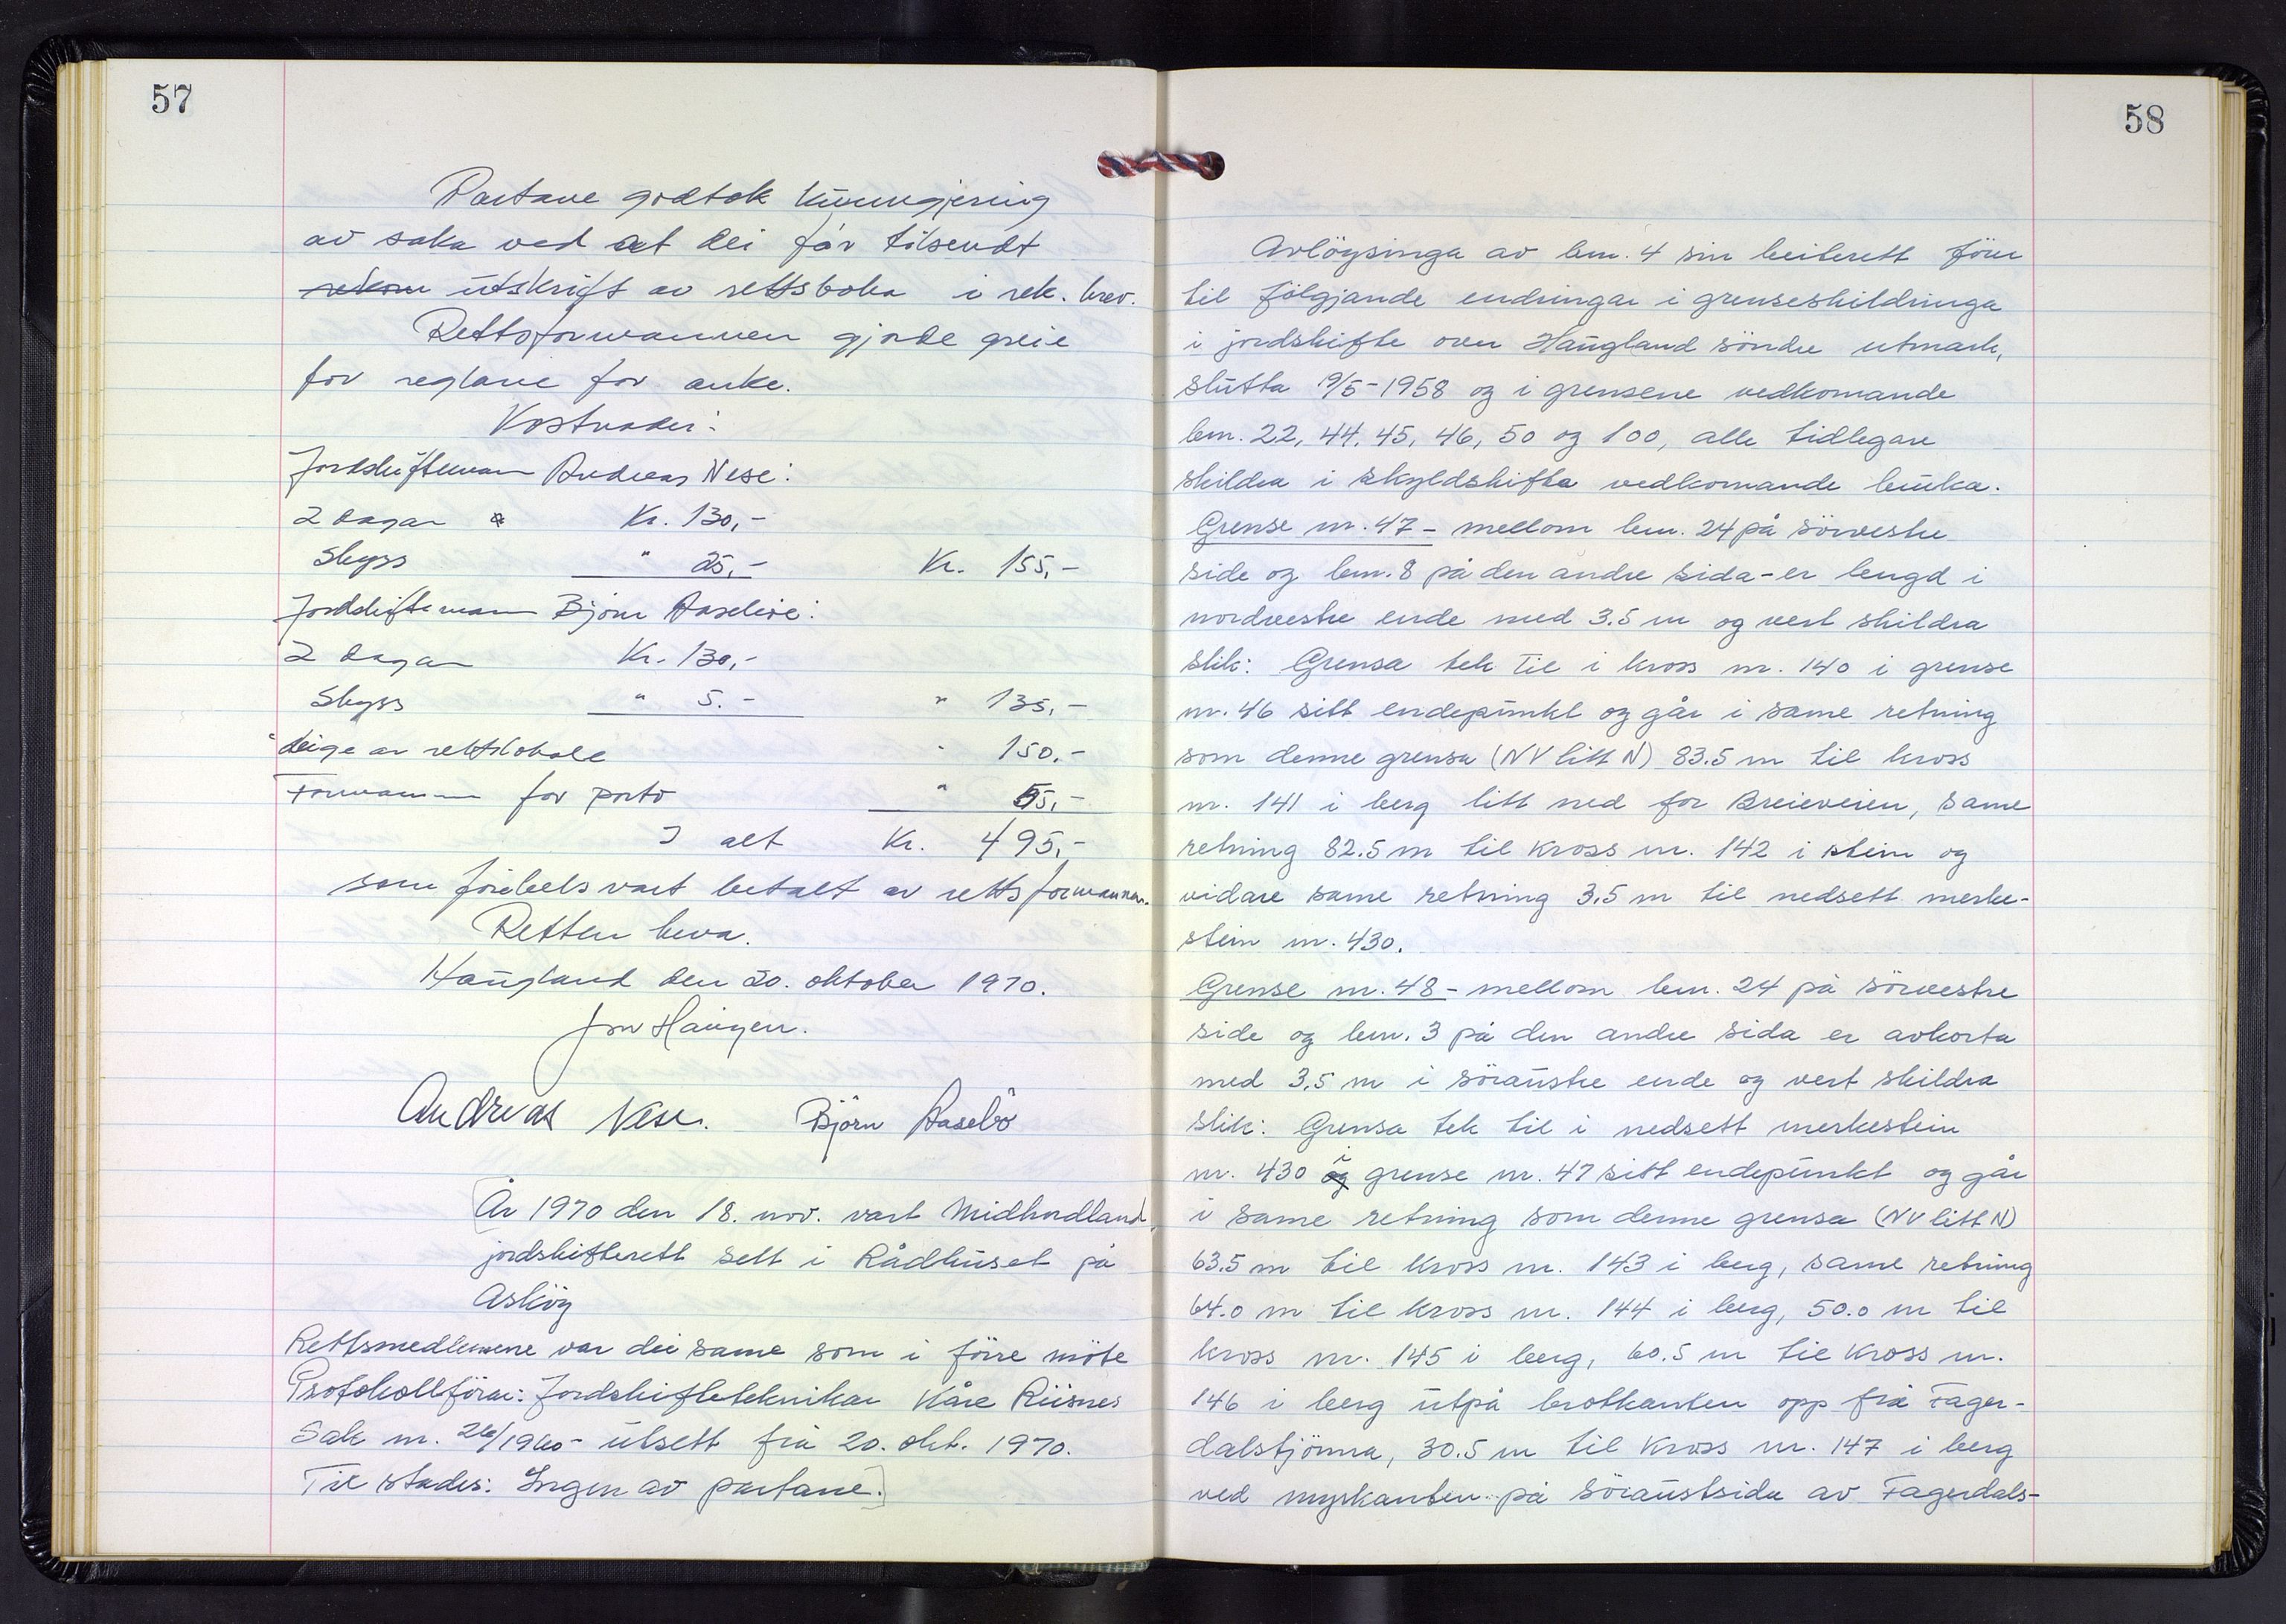 57
Partane godtok kunngjering
av saka ved at dei får tilsendt
rekom utskrift av rettsboka i rek. brev.
Rettsformannen gjorde greie
for reglane for anke.
Kostnader:
Jordskiftemann Andreas Nese:
2 dagar Kr. 130,-
Skyss " 25,- Kr. 155,-
Jordskiftemann Bjørn Aasebøe:
2 dagar Kr. 130,-
Skyss " 5.- " 135,-
Leige av rettslokale " 150.-
Formannen for porto " 55,-
I alt Kr. 495,-
som förebels vart betalt av rettsformannen.
Retten heva.
Haugland den 20. oktober 1970.
Jon Haugen.
Andreas Nese. Björn Aasebö
År 1970 den 18. nov. vart Midhordland
jordskifterett sett i Rådhuset på
Asköy
Rettsmedlemene var dei same som i förre möte
Protokollförar: Jordskifteteknikar Kåre Riisnes
Sak nr. 26/1960 - utsett frå 20. okt. 1970.
Til stades: Ingen av partane.
58
Avlöysinga av bnr. 4 sin beiterett förer
til fölgjande endringar i grenseskildringa
i jordskifte over Haugland söndre utmark,
slutta 9/5-1958 og i grensene vedkomande
bnr. 22, 44, 45, 46, 50 og 100, alle tidlegare
skildra i skyldskifta vedkomande bruka.
Grense nr. 47 - mellom bnr. 24 på sörvestre
side og bnr. 8 på den andre sida - er lengd i
nordvestre ende med 3.5 m og vert skildra
slik: Grensa tek til i kross nr. 140 i grense
nr. 46 sitt endepunkt og går i same retning
som denne grensa (NV litt N) 83.5 m til kross
nr. 141 i berg litt ned for Breieveien, same
retning 82.5 m til kross nr. 142 i stein og
vidare same retning 3.5 m til nedsett merke-
stein nr. 430.
Grense nr. 48 - mellom bnr. 24 på sörvestre
side og bnr. 3 på den andre sida er avkorta
med 3.5 m i söraustre ende og vert skildra
slik: Grensa tek til i nedsett merkestein
nr. 430 og i grense nr. 47 sitt endepunkt og går
i same retning som denne grensa (NV litt N)
63.5 m til kross nr. 143 i berg, same retning
64.0 m til kross nr. 144 i berg, 50.0 m til
kross nr. 145 i berg, 60.5 m til kross nr.
146 i berg utpå brotkanten opp frå Fager-
dalstjönna, 30.5 m til kross nr. 147 i berg
ved myrkanten på söraustsida av Fagerdals-